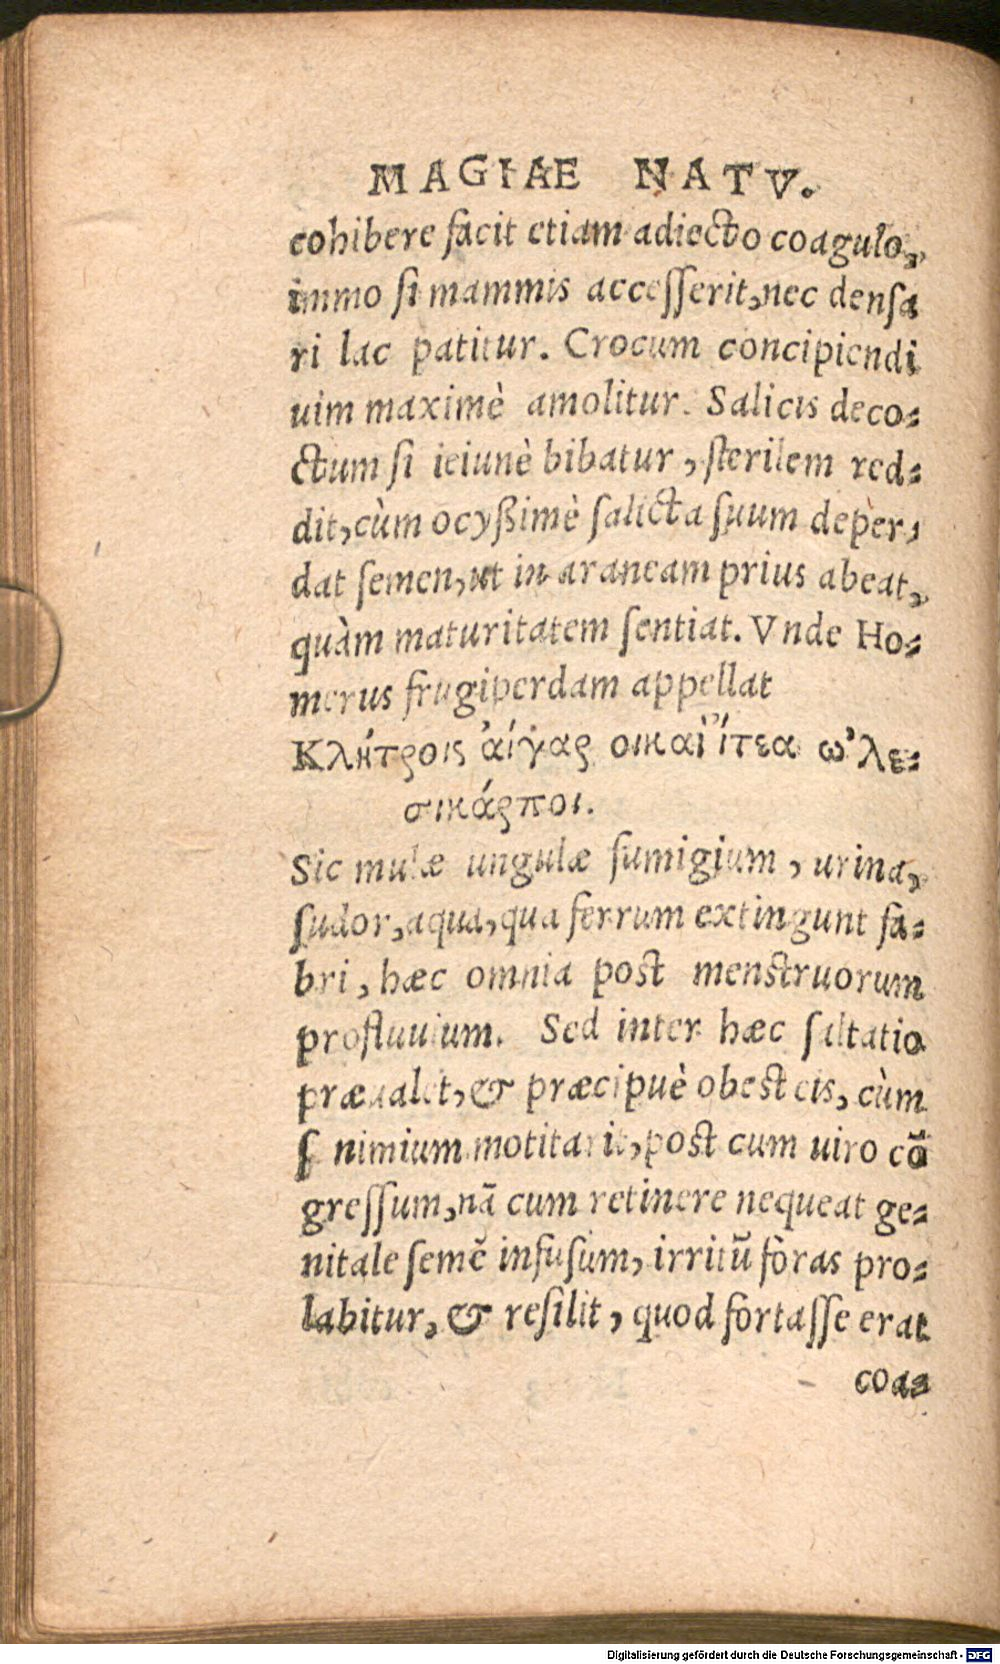 MAGIAE NATV.
cohibere facit etiam adiecto coagulo,
immo si mammis accesserit, nec densa
ri lac patitur. Crocum concipiendi
uim maximè amolitur. Salicis deco-
ctum si ieiunè bibatur, sterilem red-
dit, cùm ocyßimè salicta suum deper-
dat semen, ut in araneam prius abeat,
quàm maturitatem sentiat. Vnde Ho-
merus frugiperdam appellat
Κλήτροις ἀίγας οικαἰ ἴτεα ὠλε-
σικάρποι.
Sic mulæ ungulæ sumigium, urina,
sudor, aqua, qua ferrum extingunt fa-
bri, hæc omnia post menstruorum
profluuium. Sed inter hæc saltatio
præualet, & præcipuè obest eis, cùm
s nimium motitarit, post cum uiro cō
gressum, nā cum retinere nequeat ge-
nitale semē infusum, irritū foras pro-
labitur, & resilit, quod fortasse erat
coa-
Digitalisierung gefördert durch die Deutsche Forschungsgemeinschaft - DFG